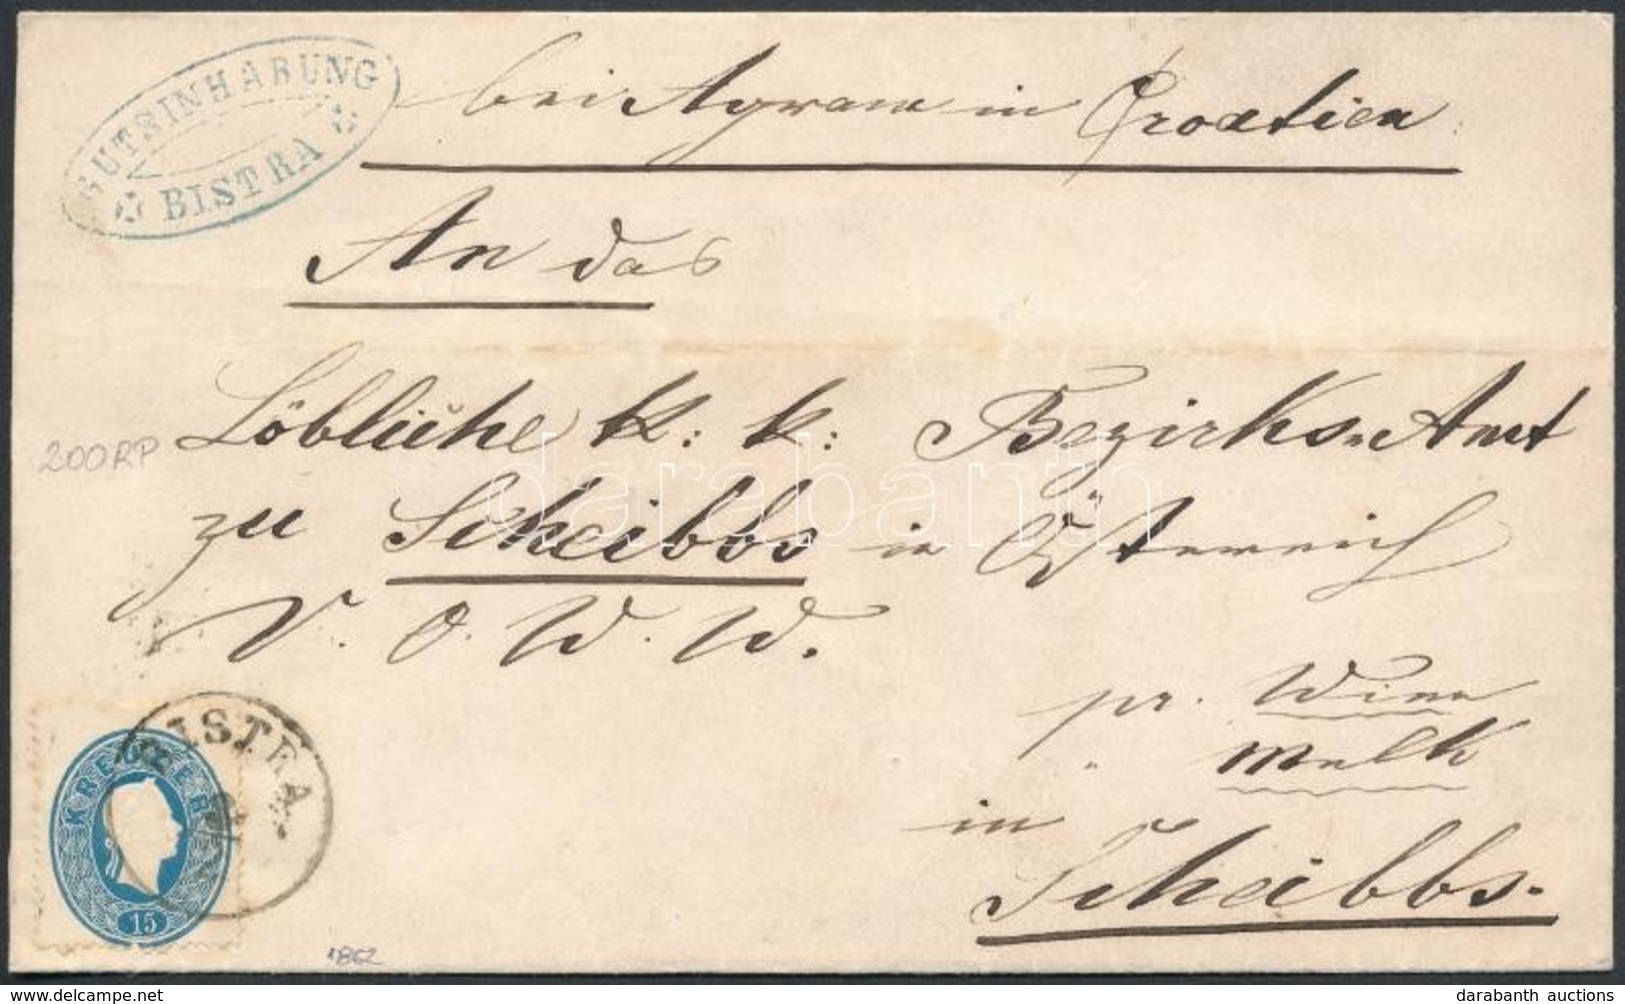 GUTSINHABUNG
BISTRA
bei Agram in Croatien
An das
Löbliche k: k: Bezirks-Amt
200RP
zu Scheibbs in Österreich
V. O. W. W.
pr. Wien
" Melk
in
Scheibbs.
BISTRA
KREUZER
15
1862
darabanth
darabanth auctions